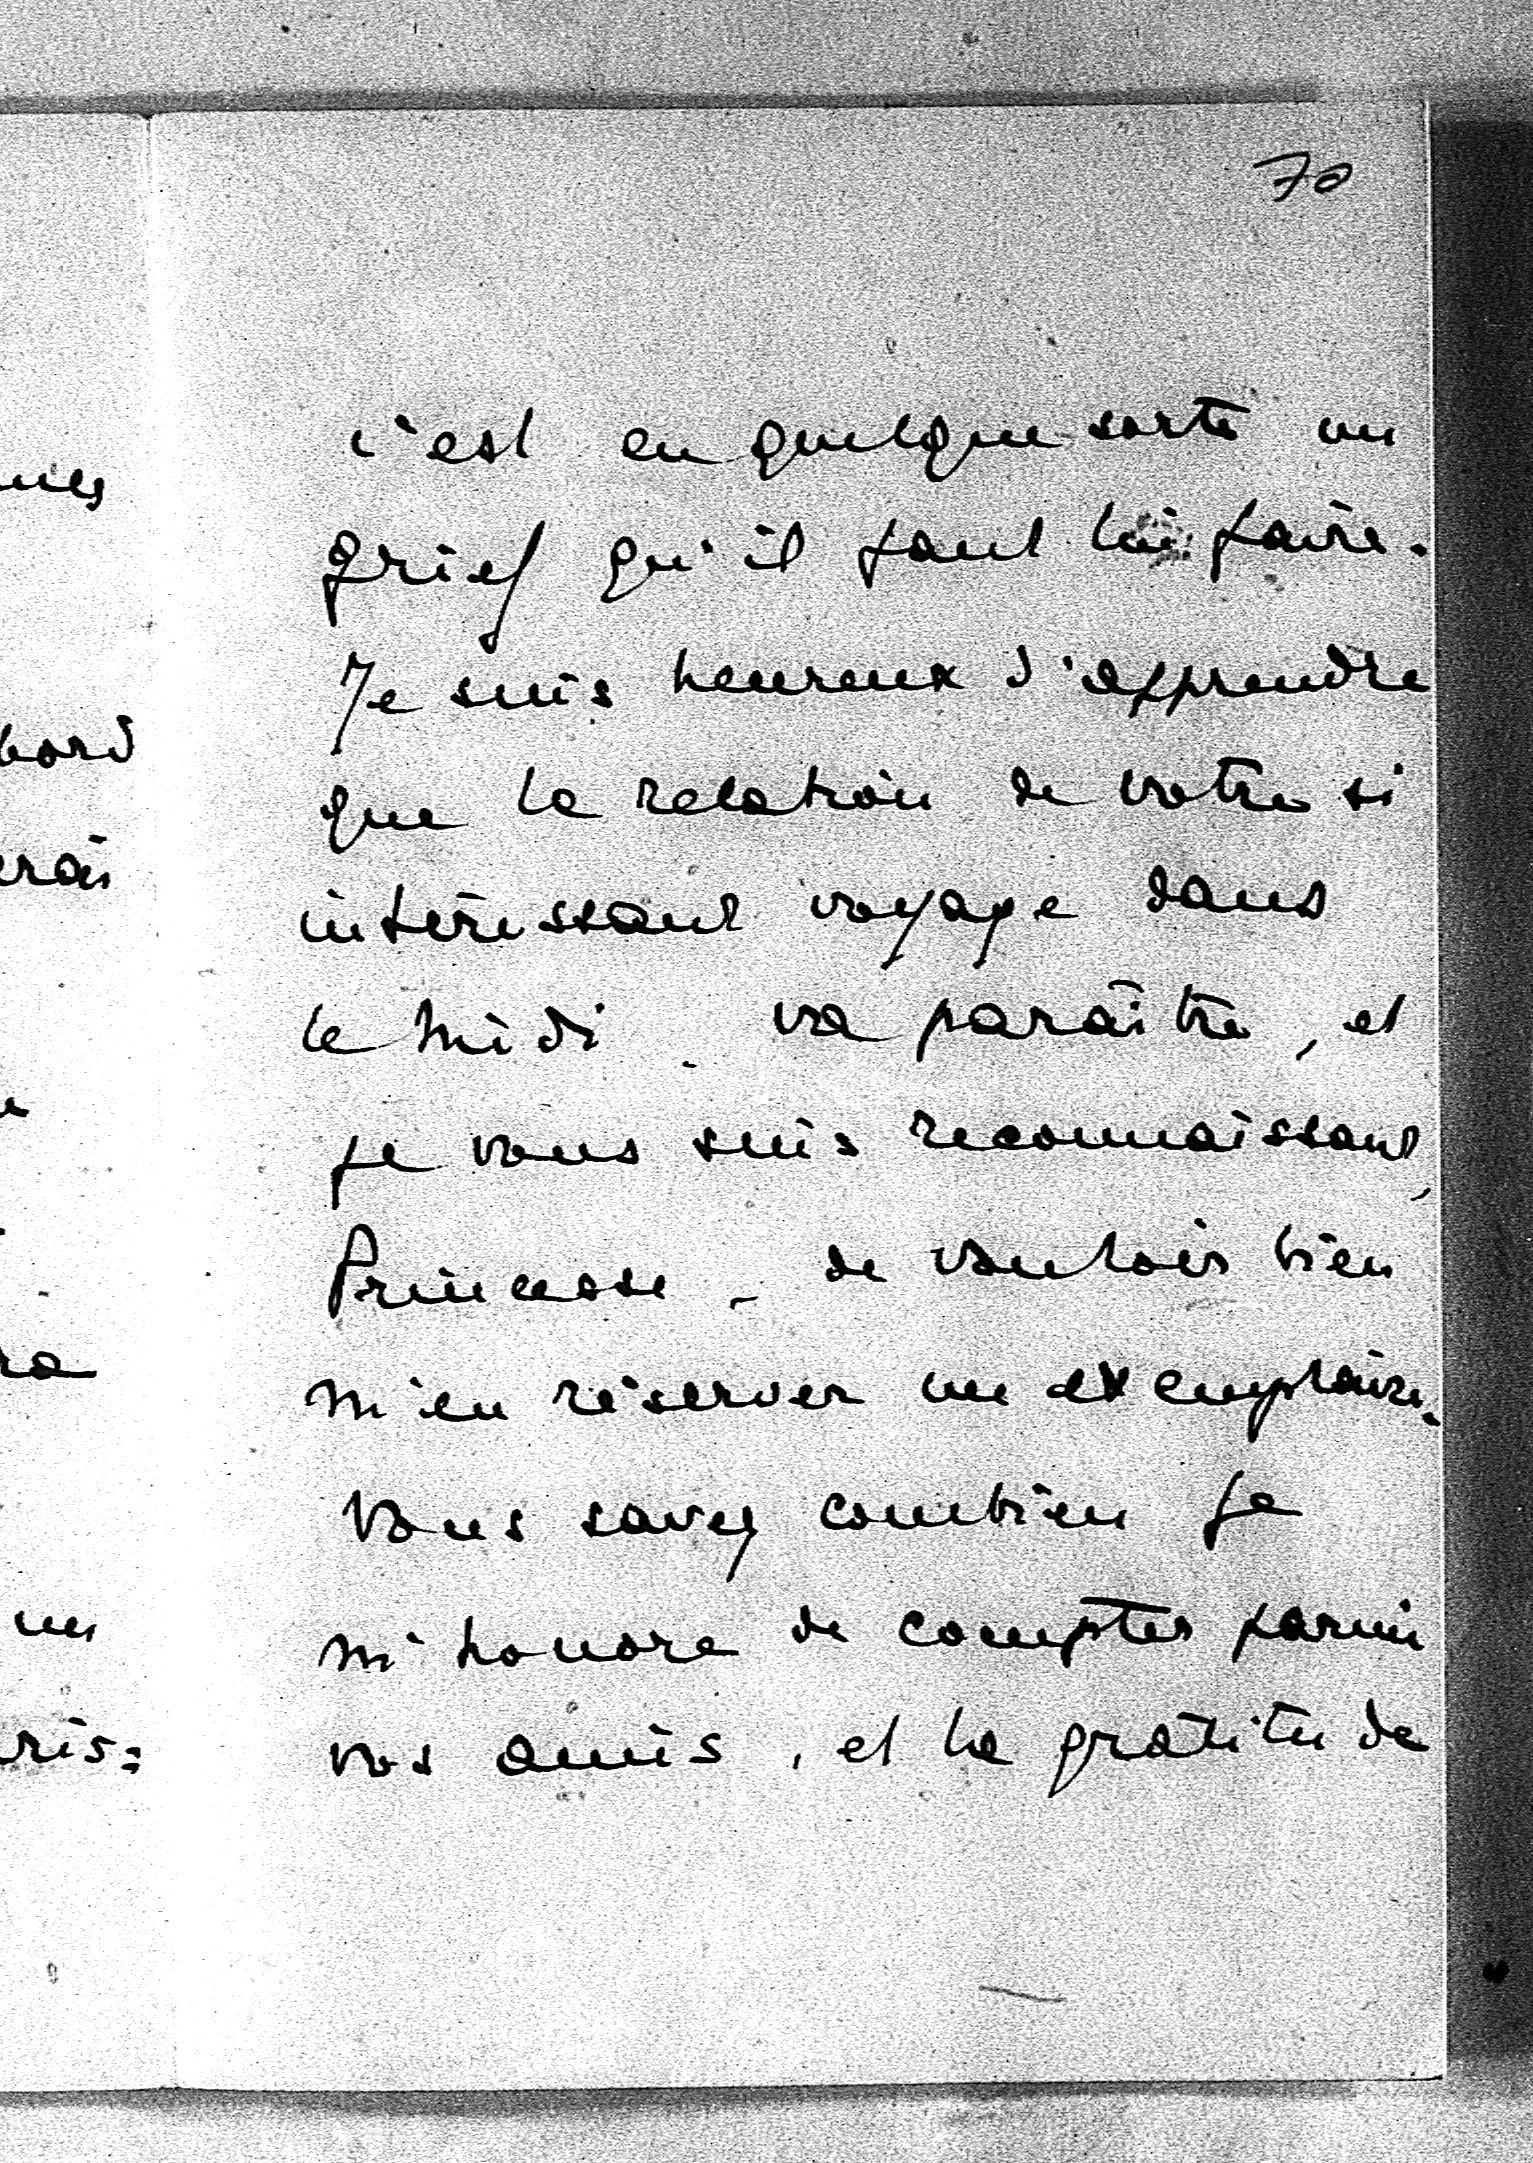 70
c'est en quelque sorte un
grief qu'il faut lui faire.
Je suis heureux d'apprendre
que la relation de votre si
intéressant voyage dans
le Midi va paraître, et
je vous suis reconnaissant,
Princesse, de vouloir bien
m'en réserver un exemplaire.
Vous savez combien je
m'honore de compter parmi
vos amis, et la gratitude